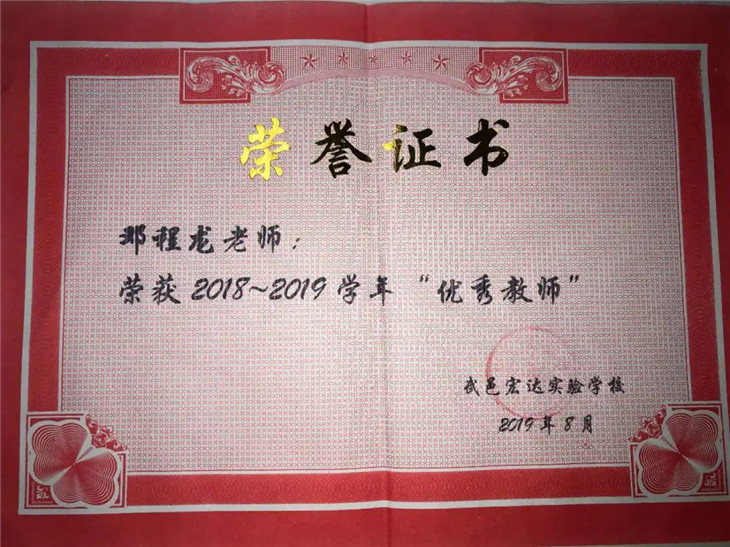 荣誉证书
邓程龙老师：
荣获2018~2019学年“优秀教师”
武邑宏达实验学校
2019年8月